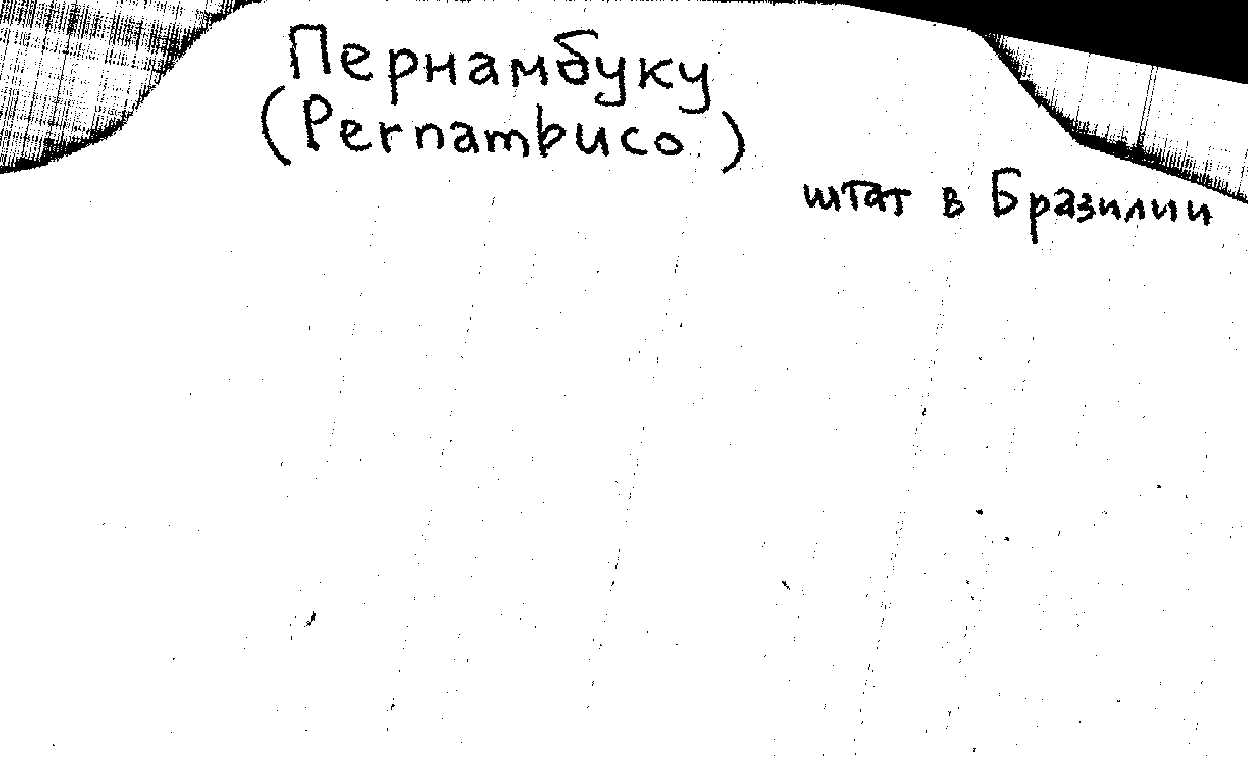 Пернамбуку
(Pernambuco)
штат в Бразилии